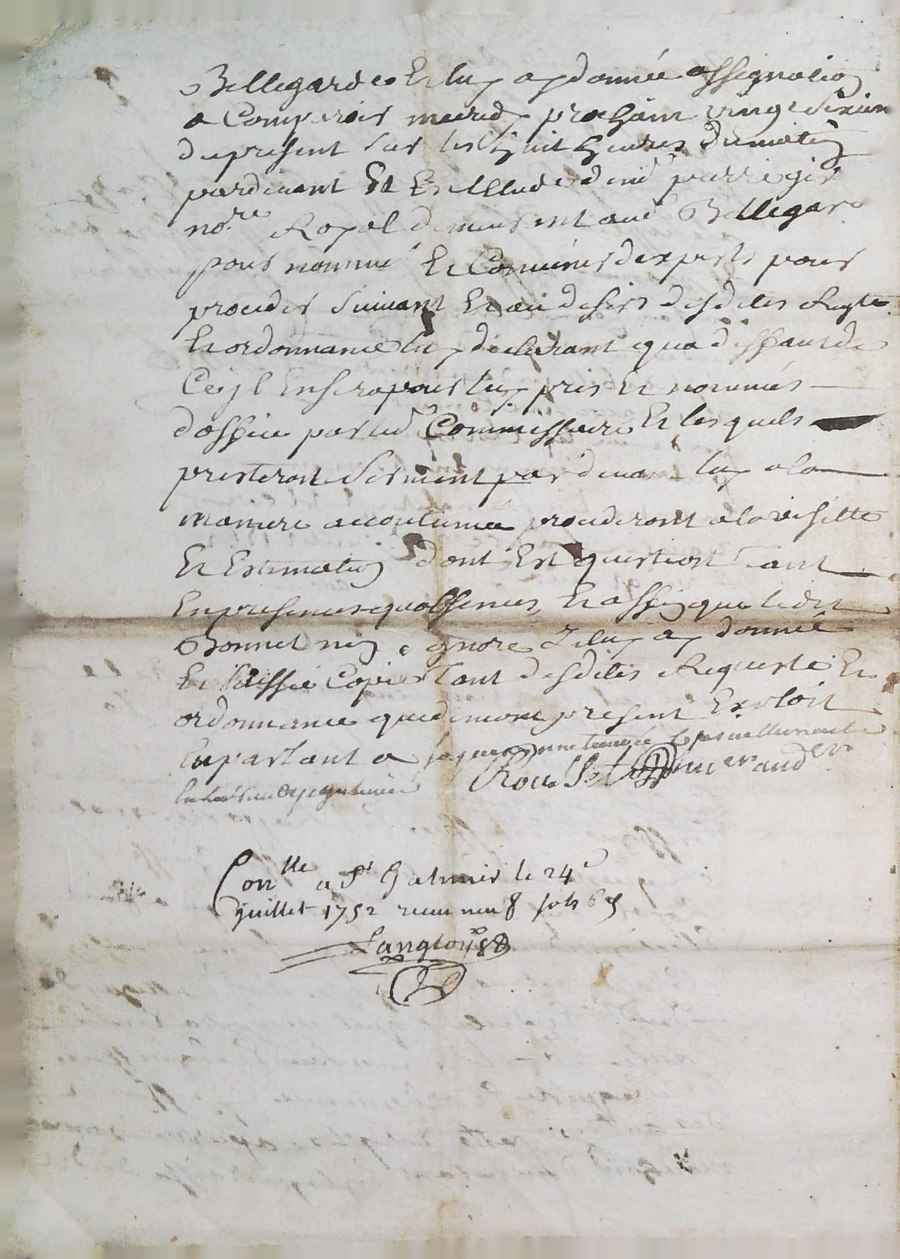 Bellegarde Et luy ay donnée assignation
a Comparoir mercredy prochain vingt sixien
du present sur les huit heures du matin
pardevant Et En L'Etude de me
no.re Royal demeurant aud Bellegar
pour nommé Et Convenir dexperts pour
proceder suivant Et au desirs desdites Reqte
Et ordonnance luy declarant qua deffaut de
Ce il En sera pour luy pris Et nommés
doffice par led Commissaire Et lesquels
presteront serment par devant luy a la
maniere accoutumée procederont a la visitte
Et Estimation dont Est question Tant
En presence quabsence, Et affin que ledit
Bonnet nen ignore Je luy ay donnée
Et laissée Copie Tant desdites Requeste Et
ordonnance que de mon present Exploit
En parlant a
Con.lle a St Galmier le 24e
juillet 1752 recu neuf sols 6 d
Langloys